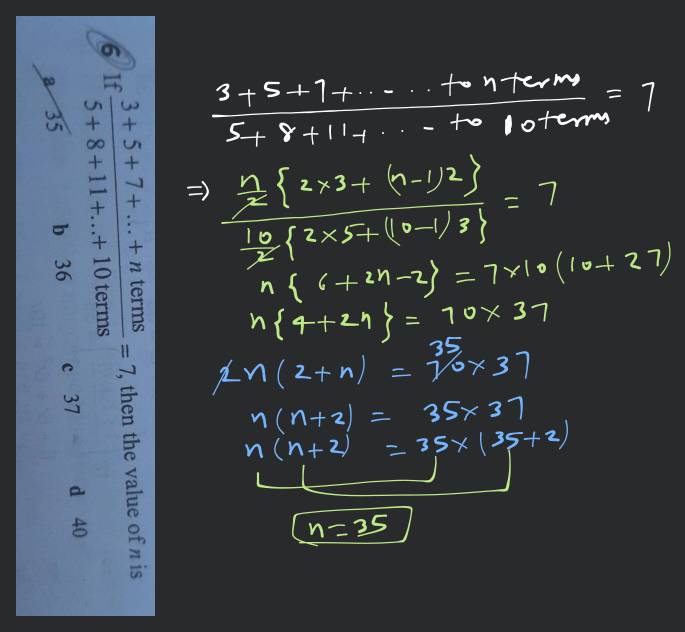 6 If 3 + 5 + 7 + ... + n terms / 5 + 8 + 11 + ... + 10 terms = 7, then the value of n is
a 35 b 36 c 37 d 40
3+5+7+..-..to n terms / 5+8+11+..-to 10 terms = 7
⇒ n/2 { 2×3+ (n-1)2} / 10/2 {2×5+(10-1)3} = 7
n { 6+2n-2} = 7×10(10+27)
n{4+2n} = 70×37
2n(2+n) = 70×37
35
n(n+2) = 35×37
n(n+2) = 35×(35+2)
n=35